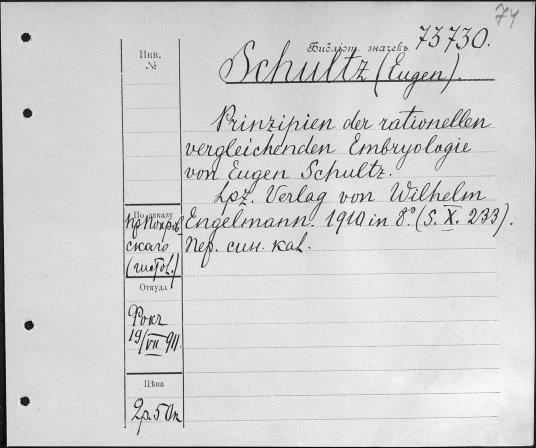 74
Библіот. значекъ 73730.
Инв.
№
Schultz (Eugen).
Prinzipien der rationellen
vergleichenden Embryologie
von Eugen Schultz.
Lpz. Verlag von Wilhelm
Engelmann. 1910 in 8° (S. X. 233).
Пер. син. кал.
По заказу
скаго
Откуда
Фокъ
19/VII 911.
Цѣна
2р. 50к